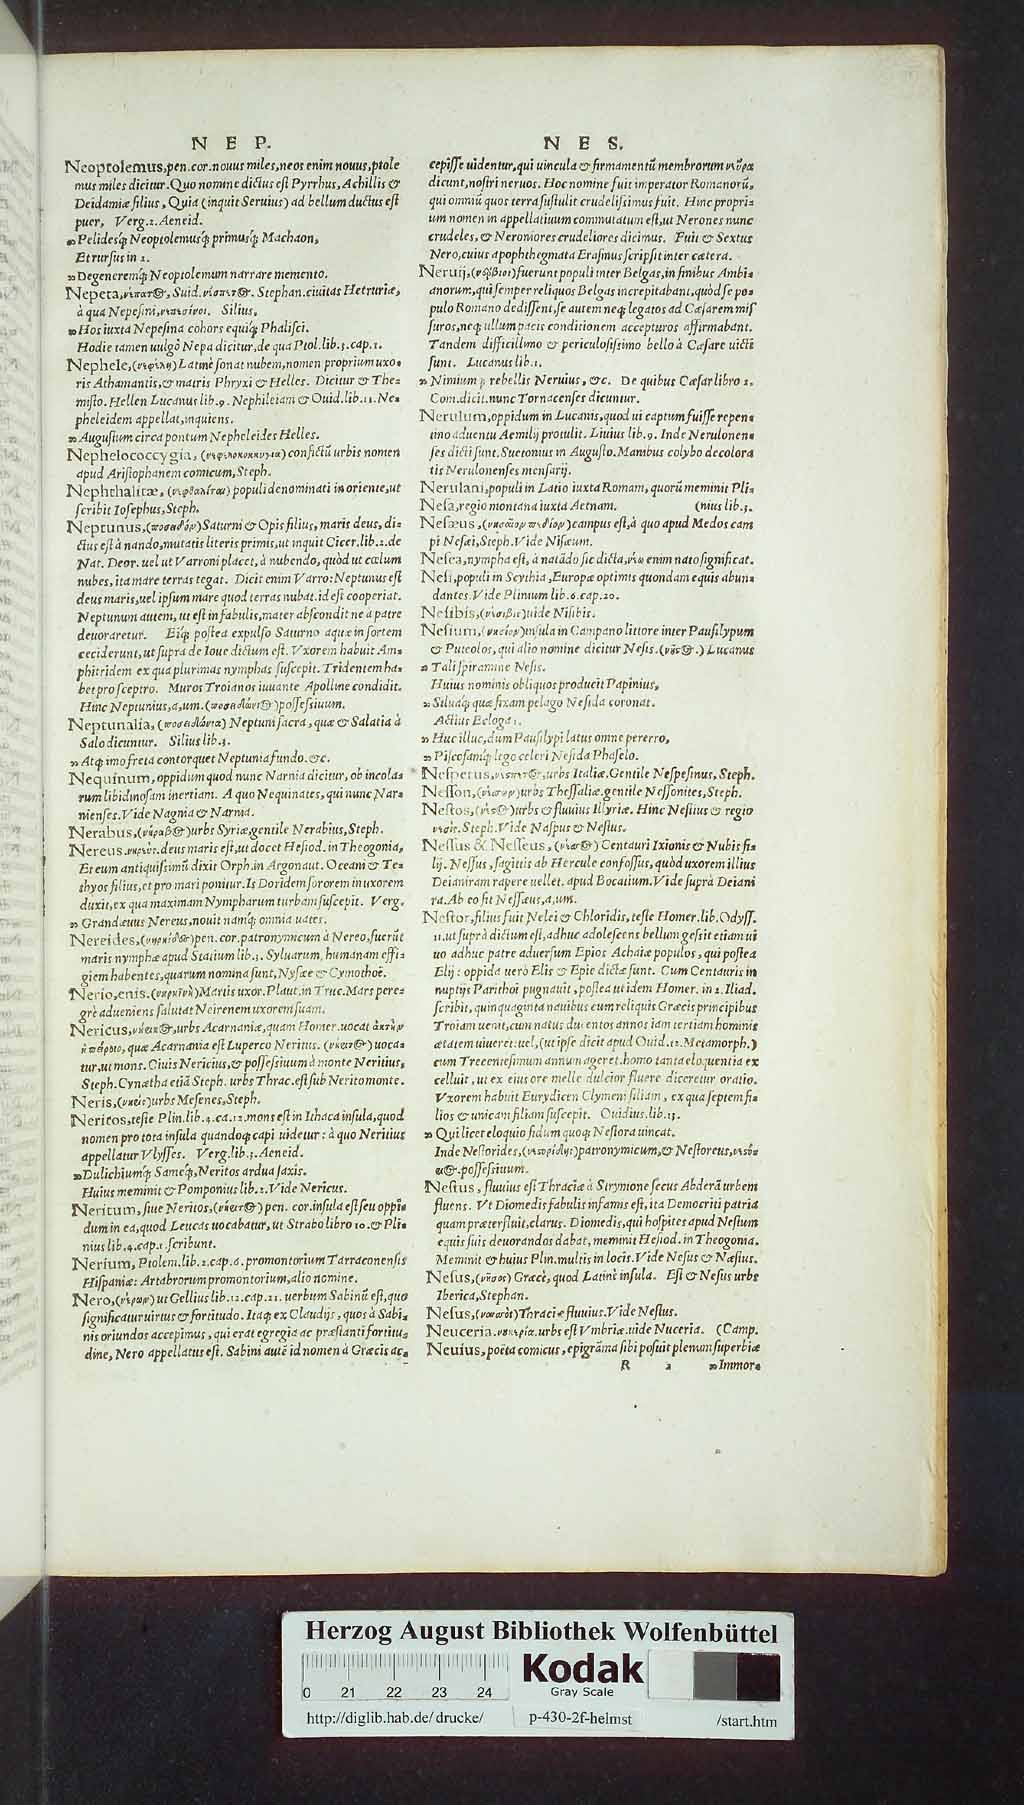 N E P.
Neoptolemus, pen. cor. nouus miles, neos enim nouus, ptole
mus miles dicitur. Quo nomine dictus est Pyrrhus, Achillis &
Deidamiæ filius, Quia (inquit Seruius) ad bellum ductus est
puer, Verg. 2. Aeneid.
Pelidesq́; Neoptolemusq́; primusq́; Machaon,
Et rursus in 2.
Degeneremq́; Neoptolemum narrare memento.
Nepeta, Suid. Stephan. ciuitas Hetruriæ,
à qua Nepesini, Silius,
Hos iuxta Nepesina cohors equiq́; Phalisci.
Hodie tamen uulgò Nepa dicitur, de qua Ptol. lib. 3. cap. 1.
Nephele, (νεφέλη) Latinè sonat nubem, nomen proprium uxo-
ris Athamantis, & matris Phryxi & Helles. Dicitur & The-
misto. Hellen Lucanus lib. 9. Nepheleiam & Ouid. lib. 11. Ne-
pheleidem appellat, inquiens.
Augustum circa pontum Nepheleides Helles.
Nephelococcygia, (νεφελοκοκκυγία) confictũ urbis nomen
apud Aristophanem comicum, Steph.
Nephthalitæ, (νεφθαλῖται) populi denominati in oriente, ut
scribit Iosephus, Steph.
Neptunus, (ποσειδῶν) Saturni & Opis filius, maris deus, di-
ctus est à nando, mutatis literis primis, ut inquit Cicer. lib. 2. de
Nat. Deor. uel ut Varroni placet, à nubendo, quòd ut cœlum
nubes, ita mare terras tegat. Dicit enim Varro: Neptunus est
deus maris, uel ipsum mare quod terras nubat. id est cooperiat.
Neptunum autem, ut est in fabulis, mater abscondit ne a patre
deuoraretur. Eiq́; postea expulso Saturno aquæ in sortem
ceciderunt, ut supra de Ioue dictum est. Vxorem habuit Am-
phitridem ex qua plurimas nymphas suscepit. Tridentem ha-
bet pro sceptro. Muros Troianos iuuante Apolline condidit.
Hinc Neptunius, a, um. possessiuum.
Neptunalia, (ποσειδώνια) Neptuni sacra, quæ & Salatia à
Salo dicuntur. Silius lib. 3.
Atq́; imo freta contorquet Neptunia fundo. &c.
Nequinum, oppidum quod nunc Narnia dicitur, ob incola-
rum libidinosam inertiam. A quo Nequinates, qui nunc Nar-
nienses. Vide Nagnia & Narnia.
Nerabus, urbs Syriæ, gentile Nerabius, Steph.
Nereus. νηρεὺς. deus maris est, ut docet Hesiod. in Theogonia,
Et eum antiquissimũ dixit Orph. in Argonaut. Oceani & Te-
thyos filius, et pro mari ponitur. Is Doridem sororem in uxorem
duxit, ex qua maximam Nympharum turbam suscepit. Verg.
Grandæuus Nereus, nouit namq́; omnia uates.
Nereides, pen. cor. patronymicum à Nereo, fuerũt
maris nymphæ apud Statium lib. 3. Syluarum, humanam effi-
giem habentes, quarum nomina sunt, Nysæe & Cymothoë.
Nerio, enis. Martis uxor. Plaut. in Truc. Mars pere-
grè adueniens salutat Neirenem uxorem suam.
Nericus, urbs Acarnaniæ, quam Homer. uocat ἀκτὴν
ἠπείροιο, quæ Acarnania est Luperco Neritus. uoca-
tur, ut mons. Ciuis Nericius, & possessiuum à monte Neritius,
Steph. Cynætha etiã Steph. urbs Thrac. est sub Nerito monte.
Neris, urbs Mesenes, Steph.
Neritos, teste Plin. lib. 4. ca. 12. mons est in Ithaca insula, quod
nomen pro tota insula quandoq́; capi uidetur: à quo Neritius
appellatur Vlysses. Verg. lib. 3. Aeneid.
Dulichiumq́; Sameq́;, Neritos ardua saxis.
Huius meminit & Pomponius lib. 2. Vide Nericus.
Neritum, siue Neritos, pen. cor. insula est seu oppi-
dum in ea, quod Leucas uocabatur, ut Strabo libro 10. & Pli-
nius lib. 4. cap. 1. scribunt.
Nerium, Ptolem. lib. 2. cap. 6. promontorium Tarraconensis
Hispaniæ: Artabrorum promontorium, alio nomine.
Nero, (νέρων) ut Gellius lib. 12. cap. 21. uerbum Sabinũ est, quo
significatur uirtus & fortitudo. Itaq́; ex Claudijs, quos à Sabi-
nis oriundos accepimus, qui erat egregia ac præstanti fortitu-
dine, Nero appellatus est. Sabini autẽ id nomen à Græcis ac-
N E S.
cepisse uidentur, qui uincula & firmamentũ membrorum νεῦρα
dicunt, nostri neruos. Hoc nomine fuit imperator Romanorũ,
qui omniũ quos terra sustulit crudelissimus fuit. Hinc propri-
um nomen in appellatiuum commutatum est, ut Nerones nunc
crudeles, & Neroniores crudeliores dicimus. Fuit & Sextus
Nero, cuius apophthegmata Erasmus scripsit inter cætera.
Neruij, fuerunt populi inter Belgas, in finibus Ambi-
anorum, qui semper reliquos Belgas increpitabant, quòd se po-
pulo Romano dedissent, se autem neq́; legatos ad Cæsarem mis
suros, neq́; ullum pacis conditionem accepturos affirmabant.
Tandem difficillimo & periculosissimo bello à Cæsare uicti
sunt. Lucanus lib. 1.
Nimium q́; rebellis Neruius, &c. De quibus Cæsar libro 2.
Com. dicit. nunc Tornacenses dicuntur.
Nerulum, oppidum in Lucanis, quod ui captum fuisse repen-
tino aduentu Aemilij protulit. Liuius lib. 9. Inde Nerulonen-
ses dicti sunt. Suetonius in Augusto. Manibus colybo decolora
tis Nerulonenses mensarij.
Nerulani, populi in Latio iuxta Romam, quorũ meminit Pli-
Nesa, regio montana iuxta Aetnam. (nius lib. 3.
Nesæus, campus est, à quo apud Medos cam
pi Nesæi, Steph. Vide Nisæum.
Nesea, nympha est, à natãdo sic dicta, νέω enim nato significat.
Nesi, populi in Scythia, Europæ optimis quondam equis abun-
dantes. Vide Plinium lib. 6. cap. 20.
Nesibis, (νέσιβις) uide Nisibis.
Nesium, insula in Campano littore inter Pausilypum
& Puteolos, qui alio nomine dicitur Nesis. Lucanus
Tali spiramine Nesis.
Huius nominis obliquos producit Papinius,
Siluaq́; quæ fixam pelago Nesida coronat.
Actius Ecloga 1.
Huc illuc, dum Pausilypi latus omne pererro,
Piscosamq́; lego celeri Nesida Phaselo.
Nespetus, urbs Italiæ. Gentile Nespesinus, Steph.
Nesson, urbs Thessaliæ. gentile Nessonites, Steph.
Nestos, urbs & fluuius Illyriæ. Hinc Nestius & regio
Steph. Vide Naspus & Nesus.
Nessus & Nesseus, Centauri Ixionis & Nubis fi-
lij. Nessus, sagittis ab Hercule confossus, quòd uxorem illius
Deianiram rapere uellet. apud Bocatium. Vide suprà Deiani
ra. Ab eo fit Nessæus, a, um.
Nestor, filius fuit Nelei & Chloridis, teste Homer. lib. Odyss.
11. ut suprà dictum est, adhuc adolescens bellum gessit etiam ui
uo adhuc patre aduersum Epios Achaiæ populos, qui postea
Elij: oppida uerò Elis & Epie dictæ sunt. Cum Centauris in
nuptijs Parithoi pugnauit, postea ut idem Homer. in 2. Iliad.
scribit, quinquaginta nauibus cum reliquis Græcis principibus
Troiam uenit, cum natus ducentos annos iam tertiam hominis
ætatem uiueret: uel, (ut ipse dicit apud Ouid. 12. Metamorph.)
cum Trecentesimum annum ageret. homo tanta eloquentia ex
celluit, ut ex eius ore melle dulcior fluere diceretur oratio.
Vxorem habuit Eurydicen Clymeni filiam, ex qua septem fi-
lios & unicam filiam suscepit. Ouidius. lib. 13.
Qui licet eloquio fidum quoq́; Nestora uincat.
Inde Nestorides, (νεστορίδης) patronymicum, & Nestoreus,
possessiuum.
Nestus, fluuius est Thraciæ à Strymone secus Abderã urbem
fluens. Vt Diomedis fabulis infamis est, ita Democriti patria
quam præterfluit, clarus. Diomedis, qui hospites apud Nestum
equis suis deuorandos dabat, meminit Hesiod. in Theogonia.
Meminit & huius Plin. multis in locis. Vide Nesus & Næsius.
Nesus, (νῆσος) Græcè, quod Latinè insula. Est & Nesus urbs
Iberica, Stephan.
Nesus, Thraciæ fluuius. Vide Nestus.
Neuceria. urbs est Vmbriæ. uide Nuceria. (Camp.
Neuius, poëta comicus, epigrãma sibi posuit plenum superbiæ
R 2 Immor-
Herzog August Bibliothek Wolfenbüttel
0 21 22 23 24
Kodak
Gray Scale
http://diglib.hab.de/drucke/ p-430-2f-helmst /start.htm